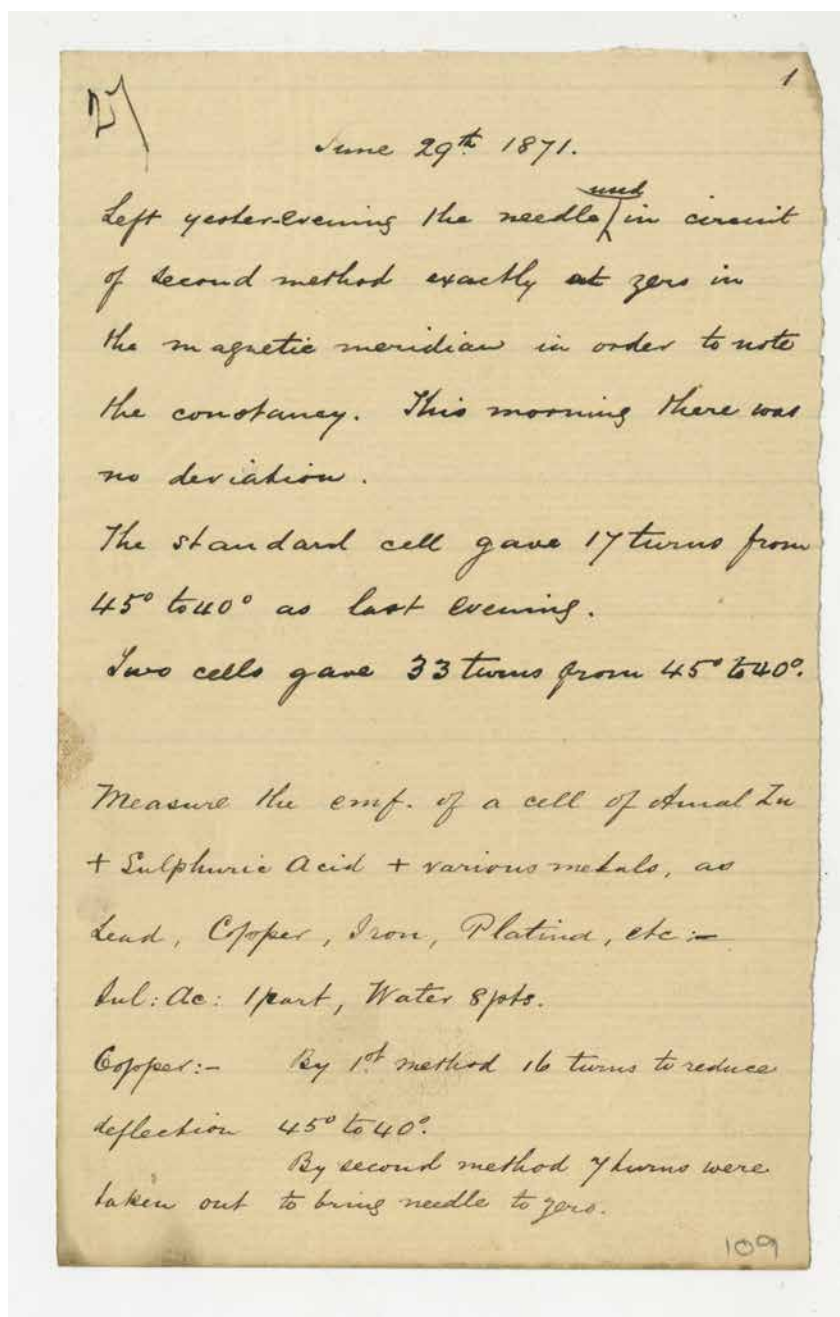 1
27
June 29th 1871.
und
Left yester-evening the needle in circuit
of second method exactly at zero in
the magnetic meridian in order to note
the constancy. This morning there was
no deviation.
The standard cell gave 17 turns from
45° to 40° as last evening.
Two cells gave 33 turns from 45° to 40°.
Measure the emf. of a cell of Amal Zn
+ Sulphuric Acid + various metals, as
Lead, Copper, Iron, Platina, etc:-
Sul: Ac: 1 part, Water 8 pts.
Copper:- By 1st method 16 turns to reduce
deflection 45° to 40°.
By second method 7 turns were
taken out to bring needle to zero.
109